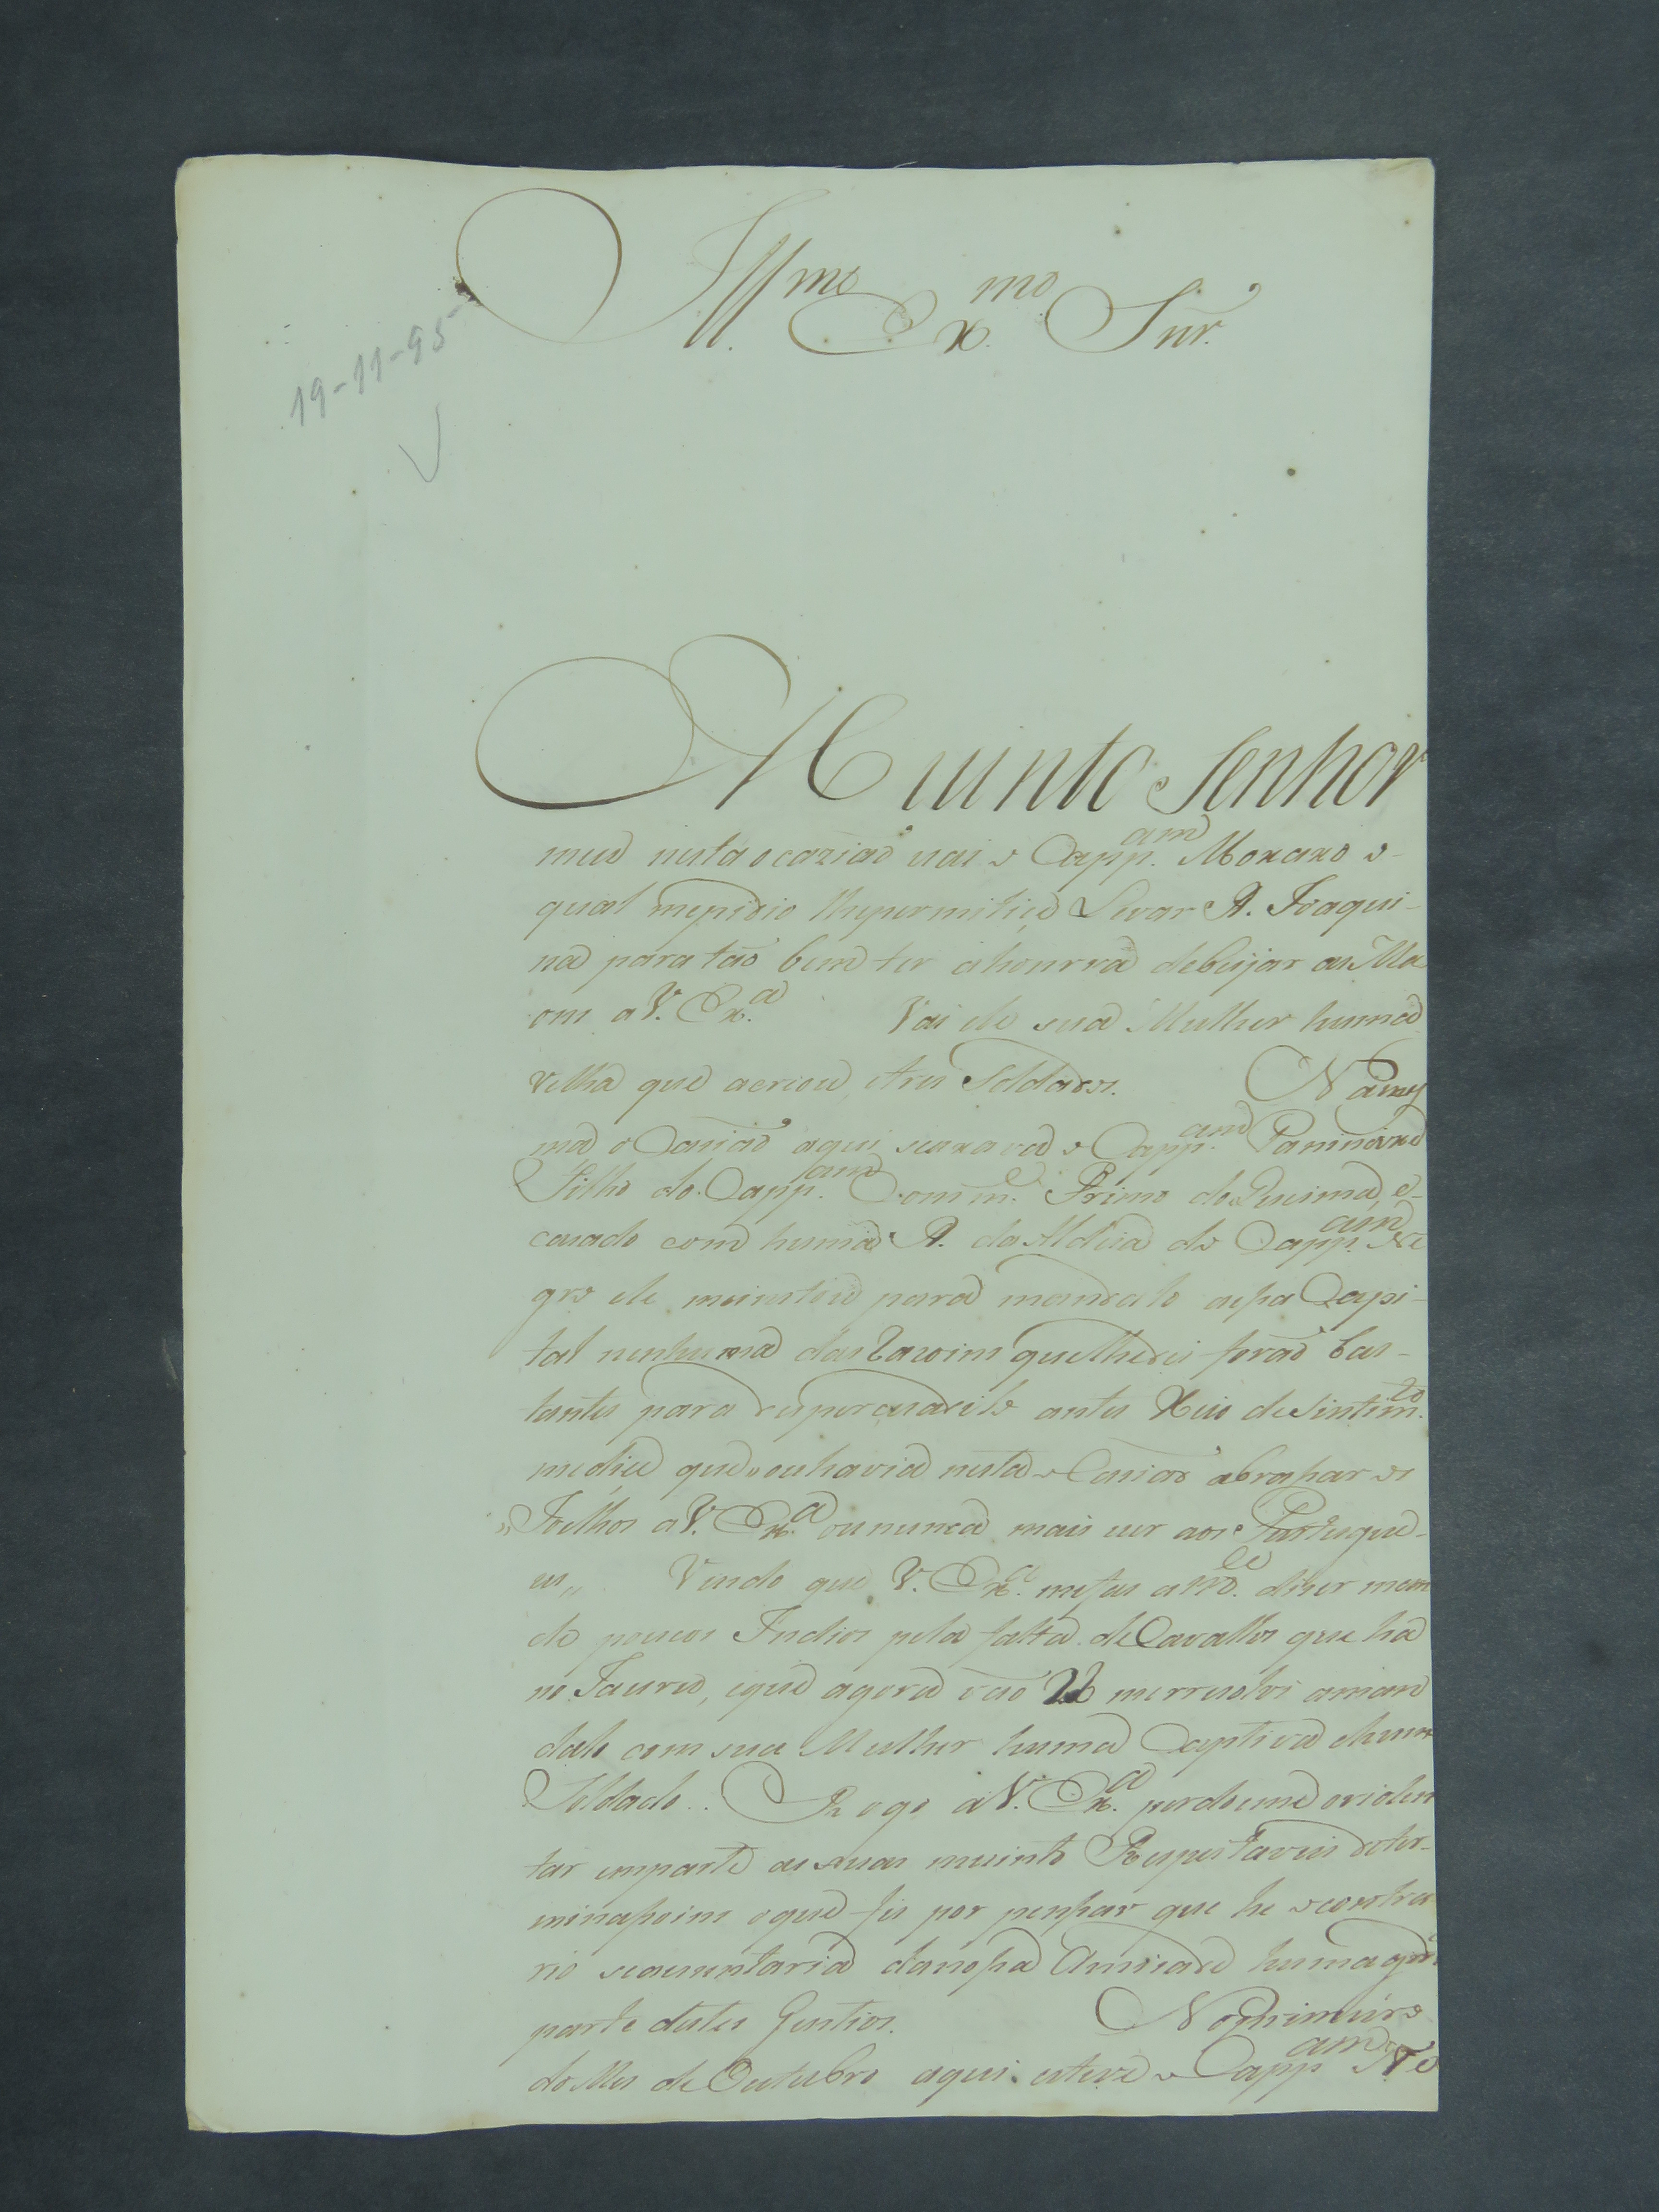 Ill.mo Ex.mo Snr.
19-11-95
Muinto Senhor
meu nesta ocaziaõ vai o Capp.am Moraxo o
qual mepidio lhepermitice Levar A. Joaqui-
na para taõ bem ter ahonrra debeijar as Ma
oms a V. Ex.a Vai ele sua Mulher huma
velha que acriou, etres Soldados. Names
ma oCaziaõ aqui seaxava o Capp.am
Filho do Capp.am Dom.e Primo de Queima, e
cazado com huma A. da Aldeia do Capp.am Ne
gro ele para mandalo aesa Capi-
tal nenhuma das Razoins quelhedei foraõ bas-
tantes para despersuadilo antes Xeio deSintim.to
medice que ouhavia nesta oCaziaõ abraçar os
"Joelhos a V. Ex.a oununca mais ver aos Purtugue-
zes" Vendo que V. Ex.a mefas a m.ce dizer mem
de poucos Indios pela falta deCavallos que ha
no Jauru, eque agora vaõ 22 merresolvi aman
dalo com sua Mulher huma Captiva ehum
Soldado. Rogo a V. Ex.a perdoeme oviolen
tar emparte as suas muinto Respeitaveis deter-
minasoins oque fis por pensar que he ocontra
rio seaumentaria danosa Amizade huma gr.de
parte destes Gentios. Noprimeiro
doMes deOutubro aqui esteve o Capp.am Ne